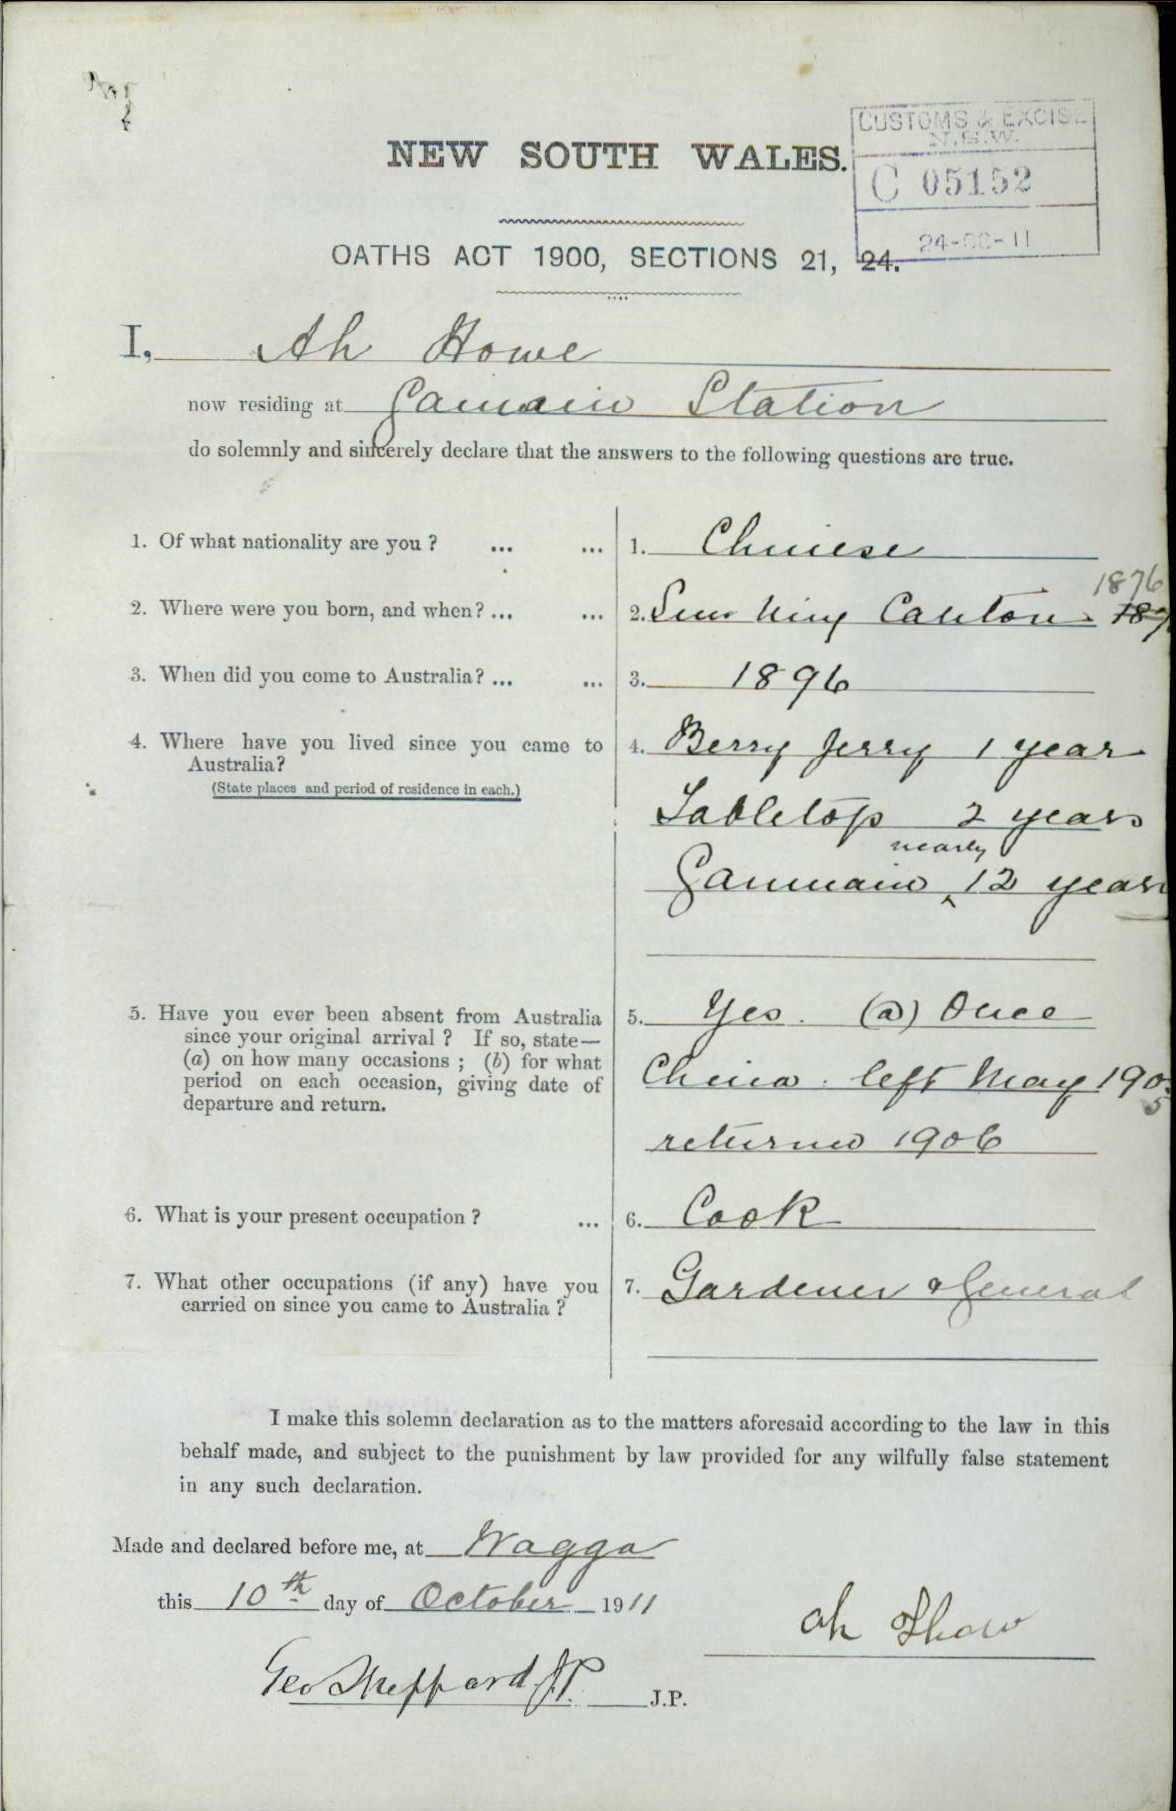 CUSTOMS & EXCISE
N.S.W.
C 05152
NEW SOUTH WALES.
OATHS ACT 1900, SECTIONS 21, 24.
I, Ah Howe
now residing at Ganmain Station
do solemnly and sincerely declare that the answers to the following questions are true.
1. Of what nationality are you ? ... ... 1. Chinese
1876
2. Where were you born, and when? ... ... 2. Sun Ning Canton 187
3. When did you come to Australia? ... ... 3. 1896
4. Where have you lived since you came to 4. Berry Jerry 1 year
Australia?
(State places and period of residence in each.)
Tabletop 2 years
nearly
Ganmain 12 years
5. Have you ever been absent from Australia 5. Yes. (a) Once
since your original arrival ? If so, state—
(a) on how many occasions ; (b) for what China. left May 1905
period on each occasion, giving date of
departure and return. returned 1906
6. What is your present occupation ? ... 6. Cook
7. What other occupations (if any) have you 7. Gardener & General
carried on since you came to Australia ?
I make this solemn declaration as to the matters aforesaid according to the law in this
behalf made, and subject to the punishment by law provided for any wilfully false statement
in any such declaration.
Made and declared before me, at Wagga
this 10th day of October 1911
Ah Show
Geo Sheppard JP. J.P.